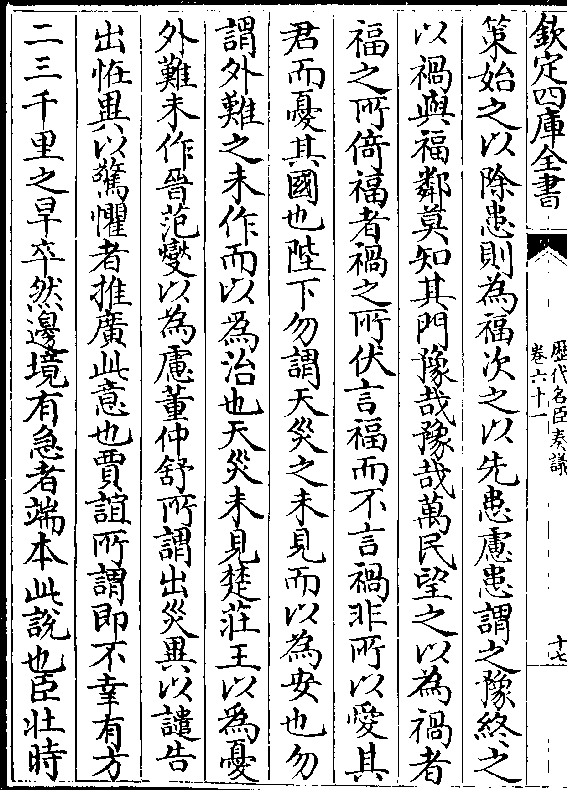 欽定四庫全書
歷代名臣奏議
卷六十一
十七
策始之以除患則為福次之以先患慮患謂之豫終之
以禍與福鄰莫知其門豫哉豫哉萬民望之以為禍者
福之所倚福者禍之所伏言福而不言禍非所以愛其
君而憂其國也陛下勿謂天災之未見而以為安也勿
謂外難之未作而以為治也天災未見楚莊王以為憂
外難未作晉范燮以為慮董仲舒所謂出災異以譴告
出恠異以驚懼者推廣此意也賈誼所謂即不幸有方
二三千里之旱卒然邊境有急者端本此說也臣壯時